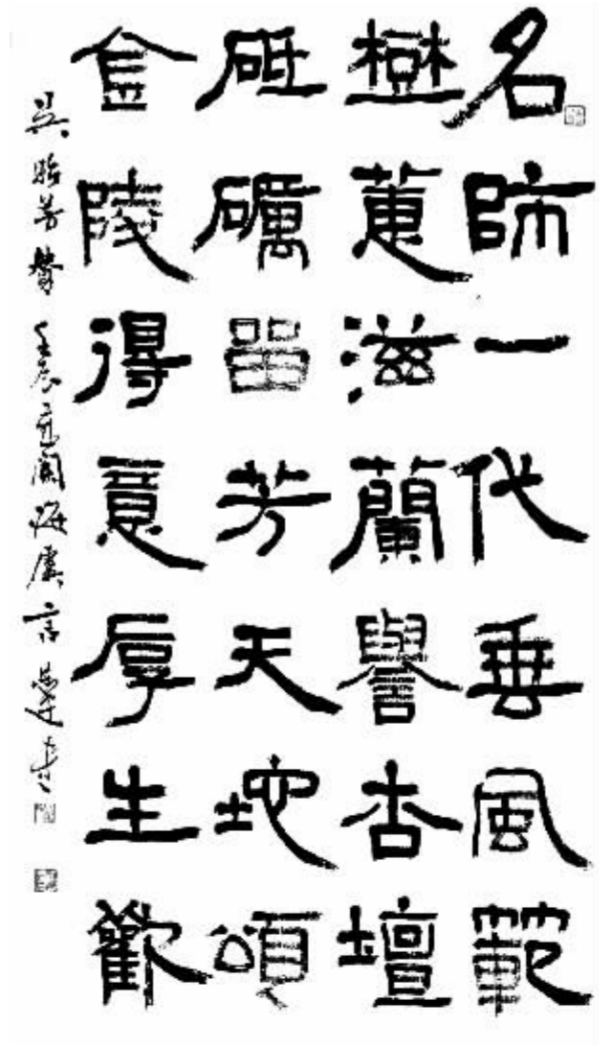 名師一代垂風範
樹蕙滋蘭譽杏壇
砥礪留芳天地頌
金陵得意厚生歡
吳貽芳贊 壬辰 海虞言恭達書